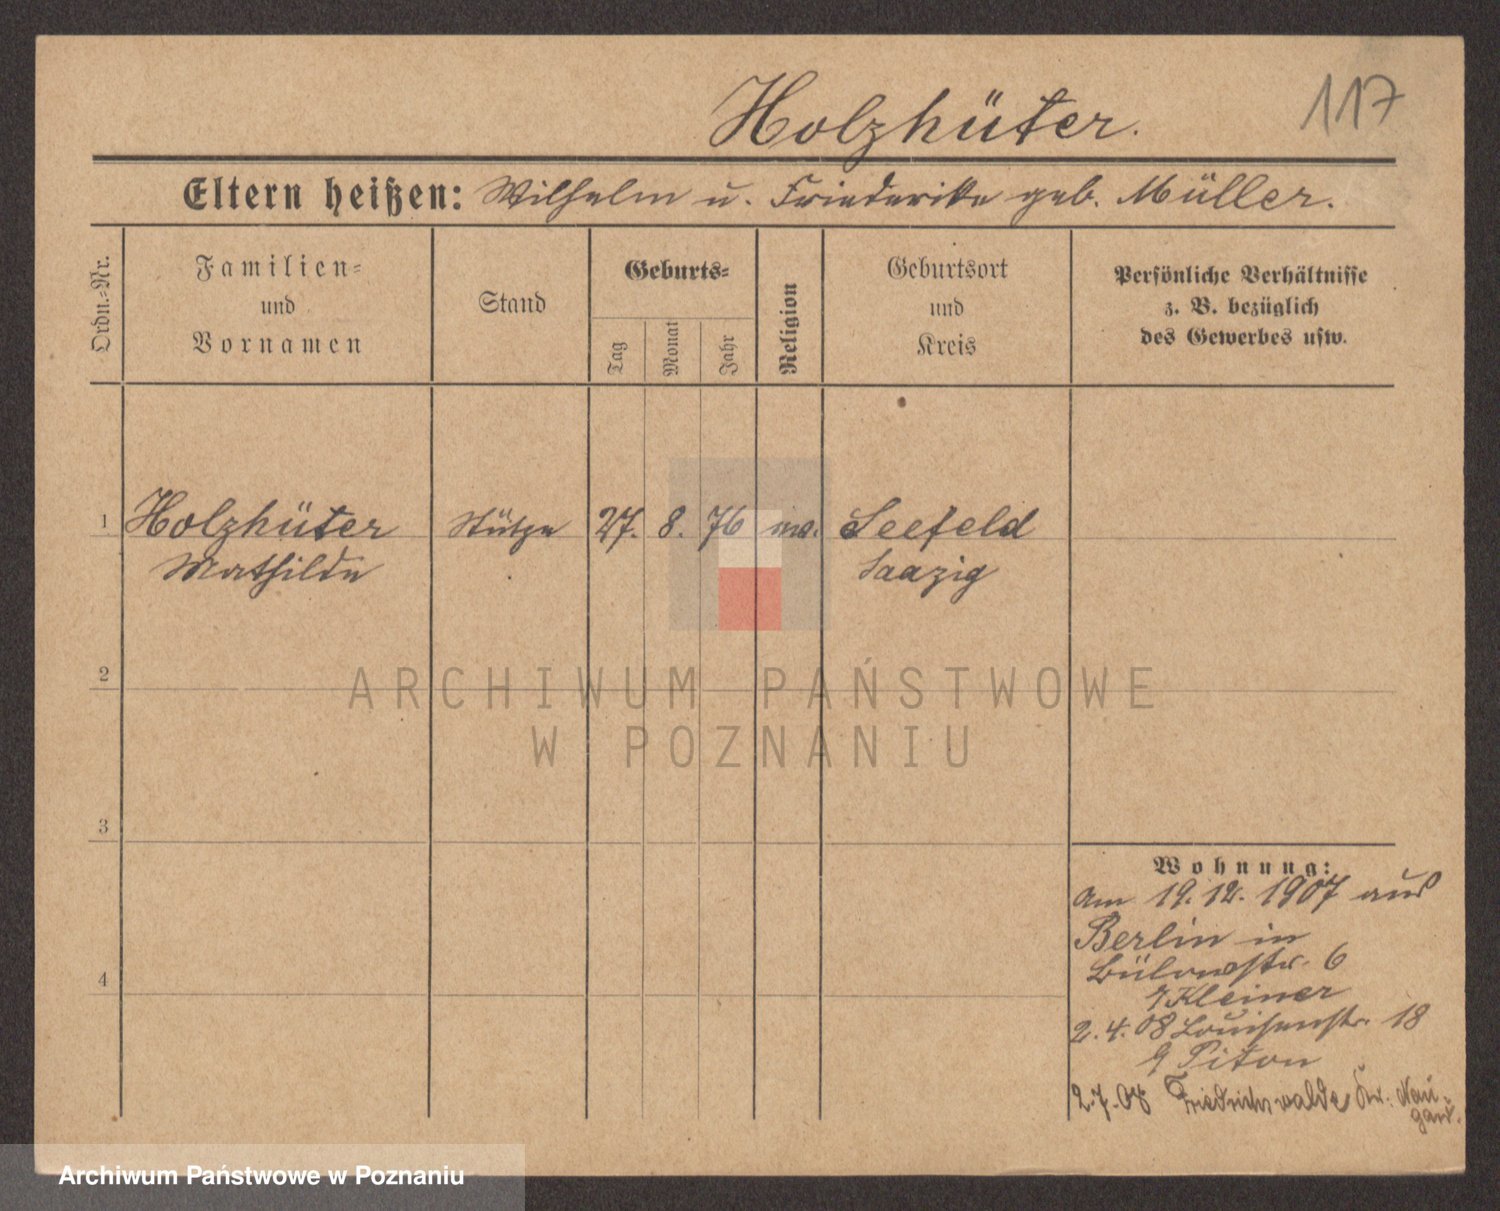 Holzhüter. 117
Eltern heißen: Wilhelm u. Friederike geb. Müller.
Ordn.-Nr.
Familien-
und
Vornamen
Stand
Geburts-
Tag
Monat
Jahr
Religion
Geburtsort
und
Kreis
Persönliche Verhältnisse
z. B. bezüglich
des Gewerbes usw.
1 Holzhüter Stütze 27. 8. 76 ev. Seefeld
Mathilde Saazig
2
ARCHIWUM PAŃSTWOWE
W POZNANIU
3
4
Wohnung:
Am 19.12.1907 aus
Berlin in
Bülowstr. 6
Kleiner
2.4.08 Louisenstr. 18
Piton
2.7.08 Friedrichswalde Kr. Nau-
gard.
Archiwum Państwowe w Poznaniu